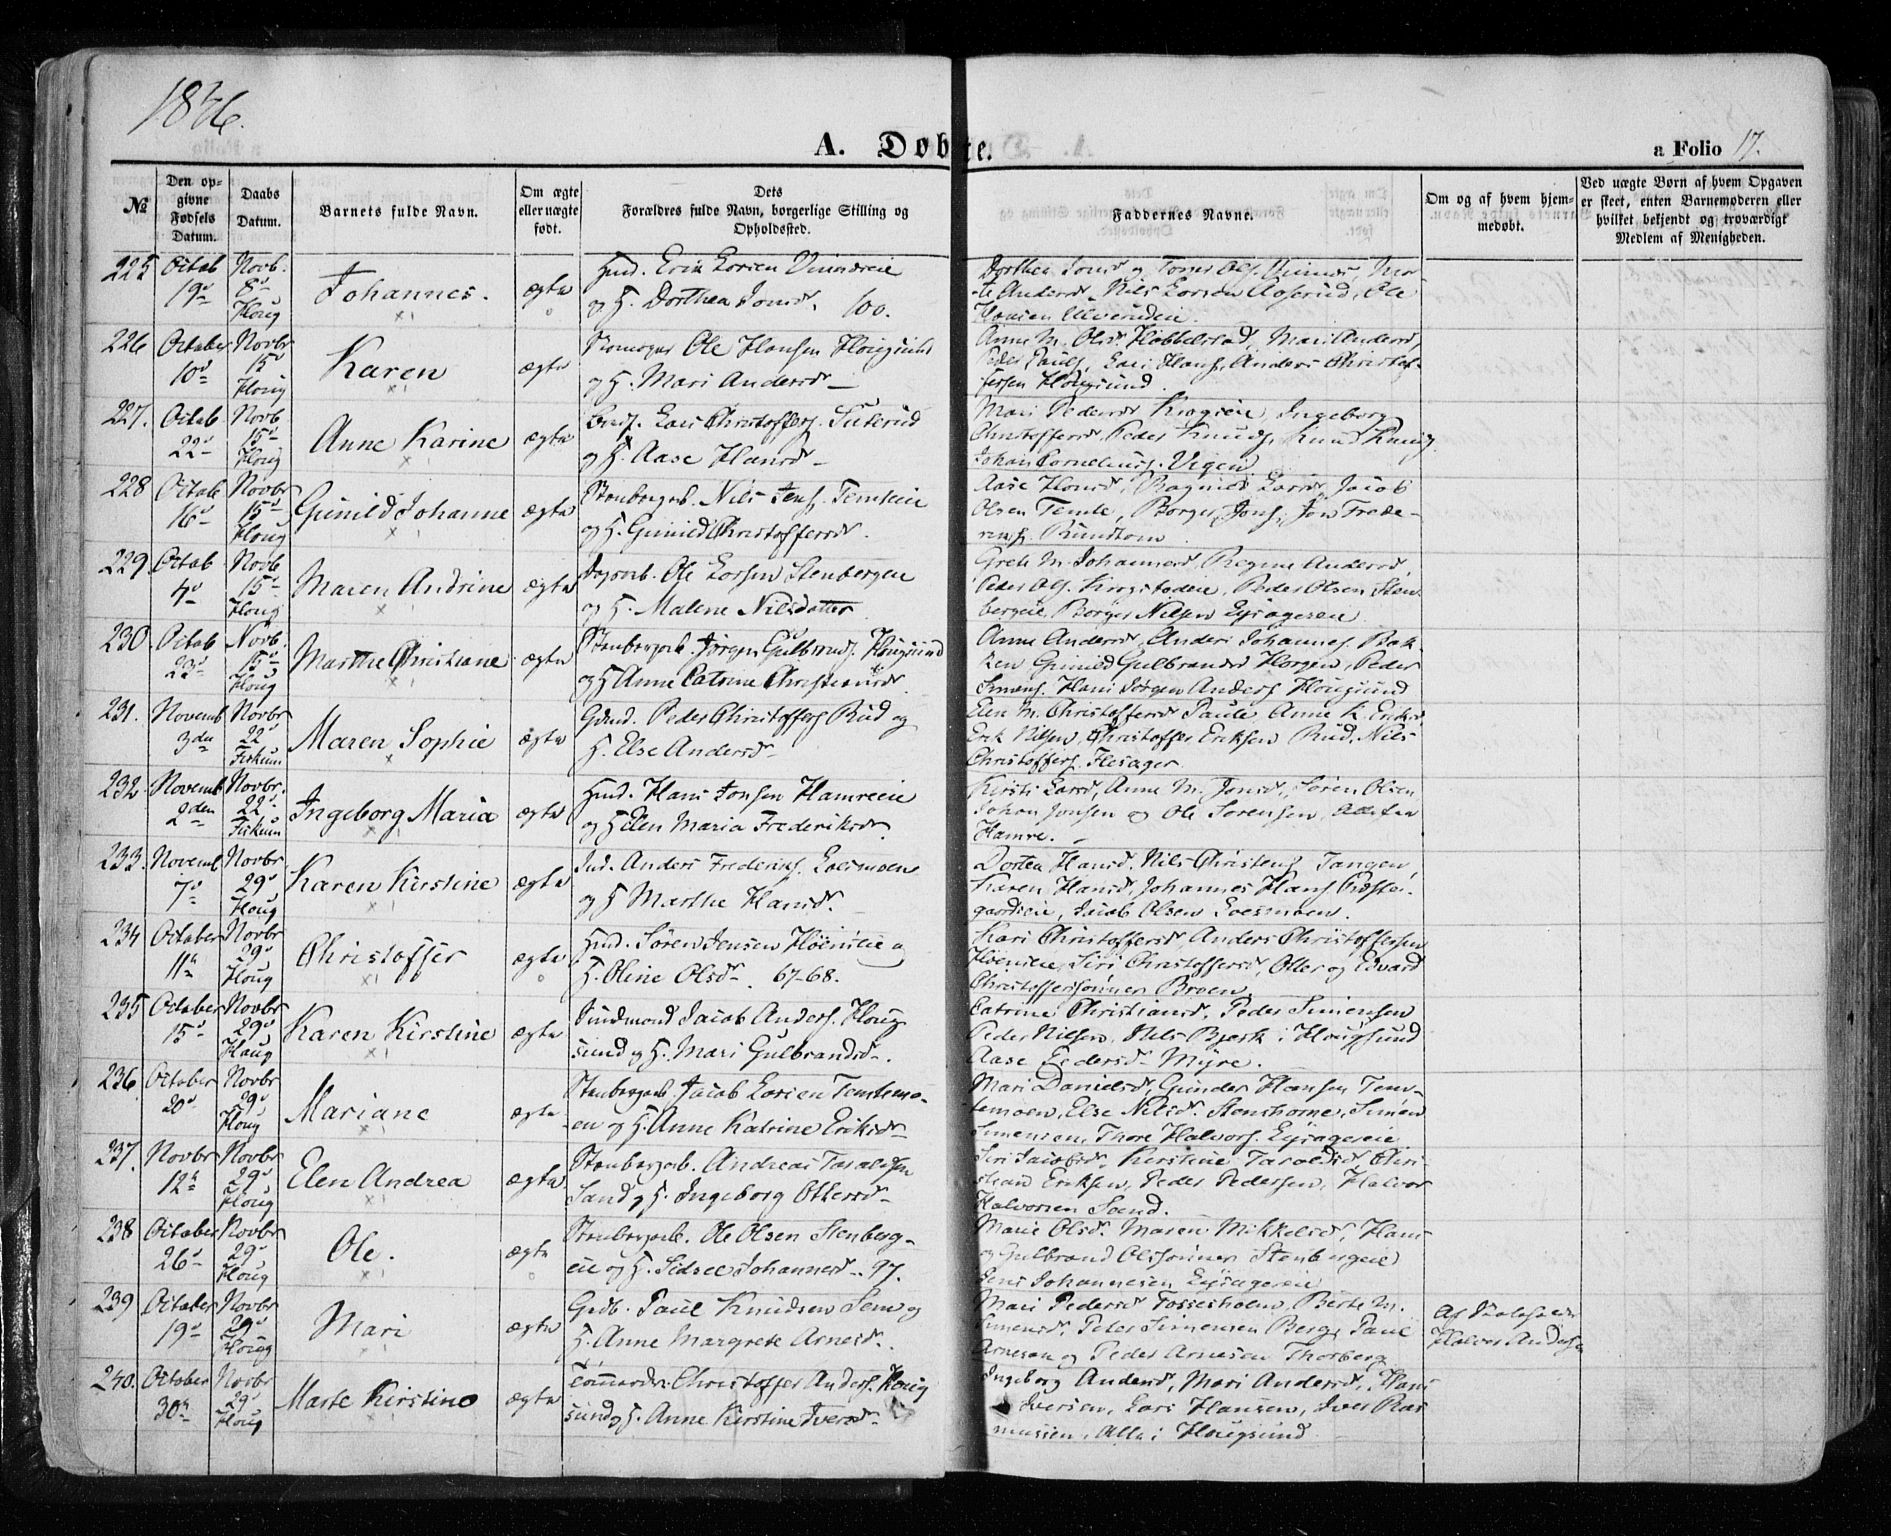 1846.
A. Døbte.
a Folio 17.
№
Den opgivne Fødsels Datum.
Daabs Datum.
Barnets fulde Navn.
Om ægte eller uægte født.
Dets Forældres fulde Navn, borgerlige Stilling og Opholdssted.
Faddernes Navne.
Om og af hvem hjemmedøbt.
Ved uægte Børn af hvem Opgaven er skeet, enten Barnemoderen eller hvilket bekjendt og troværdigt Medlem af Menigheden.
225 Octob 19de Novb. 8de Houg Johannes. ægte
Huusm. Erik Larsen
og H. Dorthea Jonsd. 100.
Dorthea Jonsd og
Andersd Nils Larsen Aaserud, Ole
Hansen
226 October 10de Novbr 15de Houg Karen ægte
Skomager Ole Hansen Hougsund
og H. Mari Andersd
Anne M. Olsd Hobbelstad, Mari Andersd,
Peder Pauls, Lars Hans, Anders Christof-
fersen Hougsund.
227. Octob 22de Novb 15de Houg Anne Karine ægte
Lars Christoffers.
og H. Aase Hansd
Mari Pedersd Ingeborg
Christoffersd, Peder Knuds, Knud Knuds,
Johan Cornelius. Vegen
228 Octob 16de Novbr 15de Houg Gunild Johanne ægte
Stenbergarb. Nils Jens. Temteeie
og H. Gunild Christoffersd.
Aase Hansd, Ragnild Larsd, Jacob
Olsen Temte, Borger Jons, Jon Frede-
riks. Rundtom
229. Octob 4de Novb 15de Houg Maren Andrine ægte
Dagarb. Ole Larsen Stenbergeie
og H. Malene Nilsdatter
Grete M. Johannesd, Regine Andersd,
Peder Ols. Krogstadeie, Peder Olsen Sten-
bergeie Borger Nilsen
230. Octob 23de Novb. 15de Houg Marthe Christiane ægte
Stenbergarb. Jørgen Gulbrands. Hougsund
og H Anne Catrine Christiansd.
Anne Andersd, Anders Johannes. Bak-
ken Gunild Gulbrandsd Horgen, Peder
Simens. Hans Jørgen Anders. Hougsund
231. Novemb 3den Novbr 22de Fiskum Maren Sophie ægte
Gdmd. Peder Christoffers Rud og
H. Else Andersd
Elen M. Christoffersd Paule, Anne K. Eriksd
Erik Nilsen, Christoffer Eriksen Rud, Nils
Christoffers. Flesager
232. Novemb 2den Novbr. 22de Fiskum Ingeborg Maria ægte
Huusm. Hans Jonsen Hamreeie
og H Elen Maria Frederiksd.
Kirsti Larsd, Anne M. Jonsd, Søren Olsen
Johan Jonsen og Ole Sørensen, Alle fra
Hamre.
233. Novemb 7de Novbr 29de Houg Karen Kirstine ægte
Ind. Anders Frederiks. Loesmoen
og H Marthe Hansd.
Dortea Hansd. Nils Christens Tangen,
Karen Hansd, Johannes Hans Præste-
gaardseie, Jacob Olsen Loesmoen.
234 October 11te Novbr 29de Houg Christoffer ægte
Huusm. Søren Jensen Høeneeie og
H. Oline Olsd. 67-68.
Kari Christoffersd, Anders Christoffersen
Høeneeie, Siri Christoffersd, Otter og Edvard
Christofferssønner Broen
235 October 15de Novbr 29de Houg Karen Kirstine ægte
Sundmand Jacob Anders. Houg-
sund og H. Mari Gulbrandsd.
Catrine Christiansd, Peder Simensen
Peder Nilsen, Nils Bjerk i Hougsund
Aase Pedersd Myre.
236. October 20de Novbr 29de Houg Mariane ægte
Stenbergarb Jacob Larsen Temtemo-
en og H. Anne Katrine Eriksd
Mari Danielsd, Gunder Hansen Tem-
temoen, Else Nilsd. Stenshorne, Simen
Simensen, Thore Halvors.
237. Novbr 12te Novbr 29de Houg Elen Andrea ægte
Stenbergarb. Andreas Taraldsen
Sand og H. Ingeborg Ottersd
Siri Jacobsd, Kirstine Taraldsd Chri-
stian Eriksen, Peder Pedersen, Halvor
Halvorsen Sand.
238 October 26de Novbr 29de Houg Ole. ægte
Stenbergarb. Ole Olsen Stenberg-
eie og H. Sidsel Johannesd. 97.
Marie Olsd. Maren Mikkelsd, Hans
og Gulbrand Olssønner Stenbergeie
Jens Johannesen
239 October 19de Novbr 29de Houg Mari ægte
Gdb. Paul Knudsen Sem og
H. Anne Margrete Arnesd.
Mari Pedersd Fossesholm, Berte M.
Simensd, Peder Simensen Berg, Paul
Arnesen og Peder Arnesen Thorberg
Af Skoleh
Halvor Anders
240. October 30te Novbr 29de Houg Marte Kirstine ægte
Tømmerdr. Christoffer Anders. Houg-
sund og H. Anne Kirstine Iversd
Ingeborg Andersd, Mari Andersd, Hans
Iversen, Lars Hansen, Iver Ras-
mussen, Alle i Hougsund